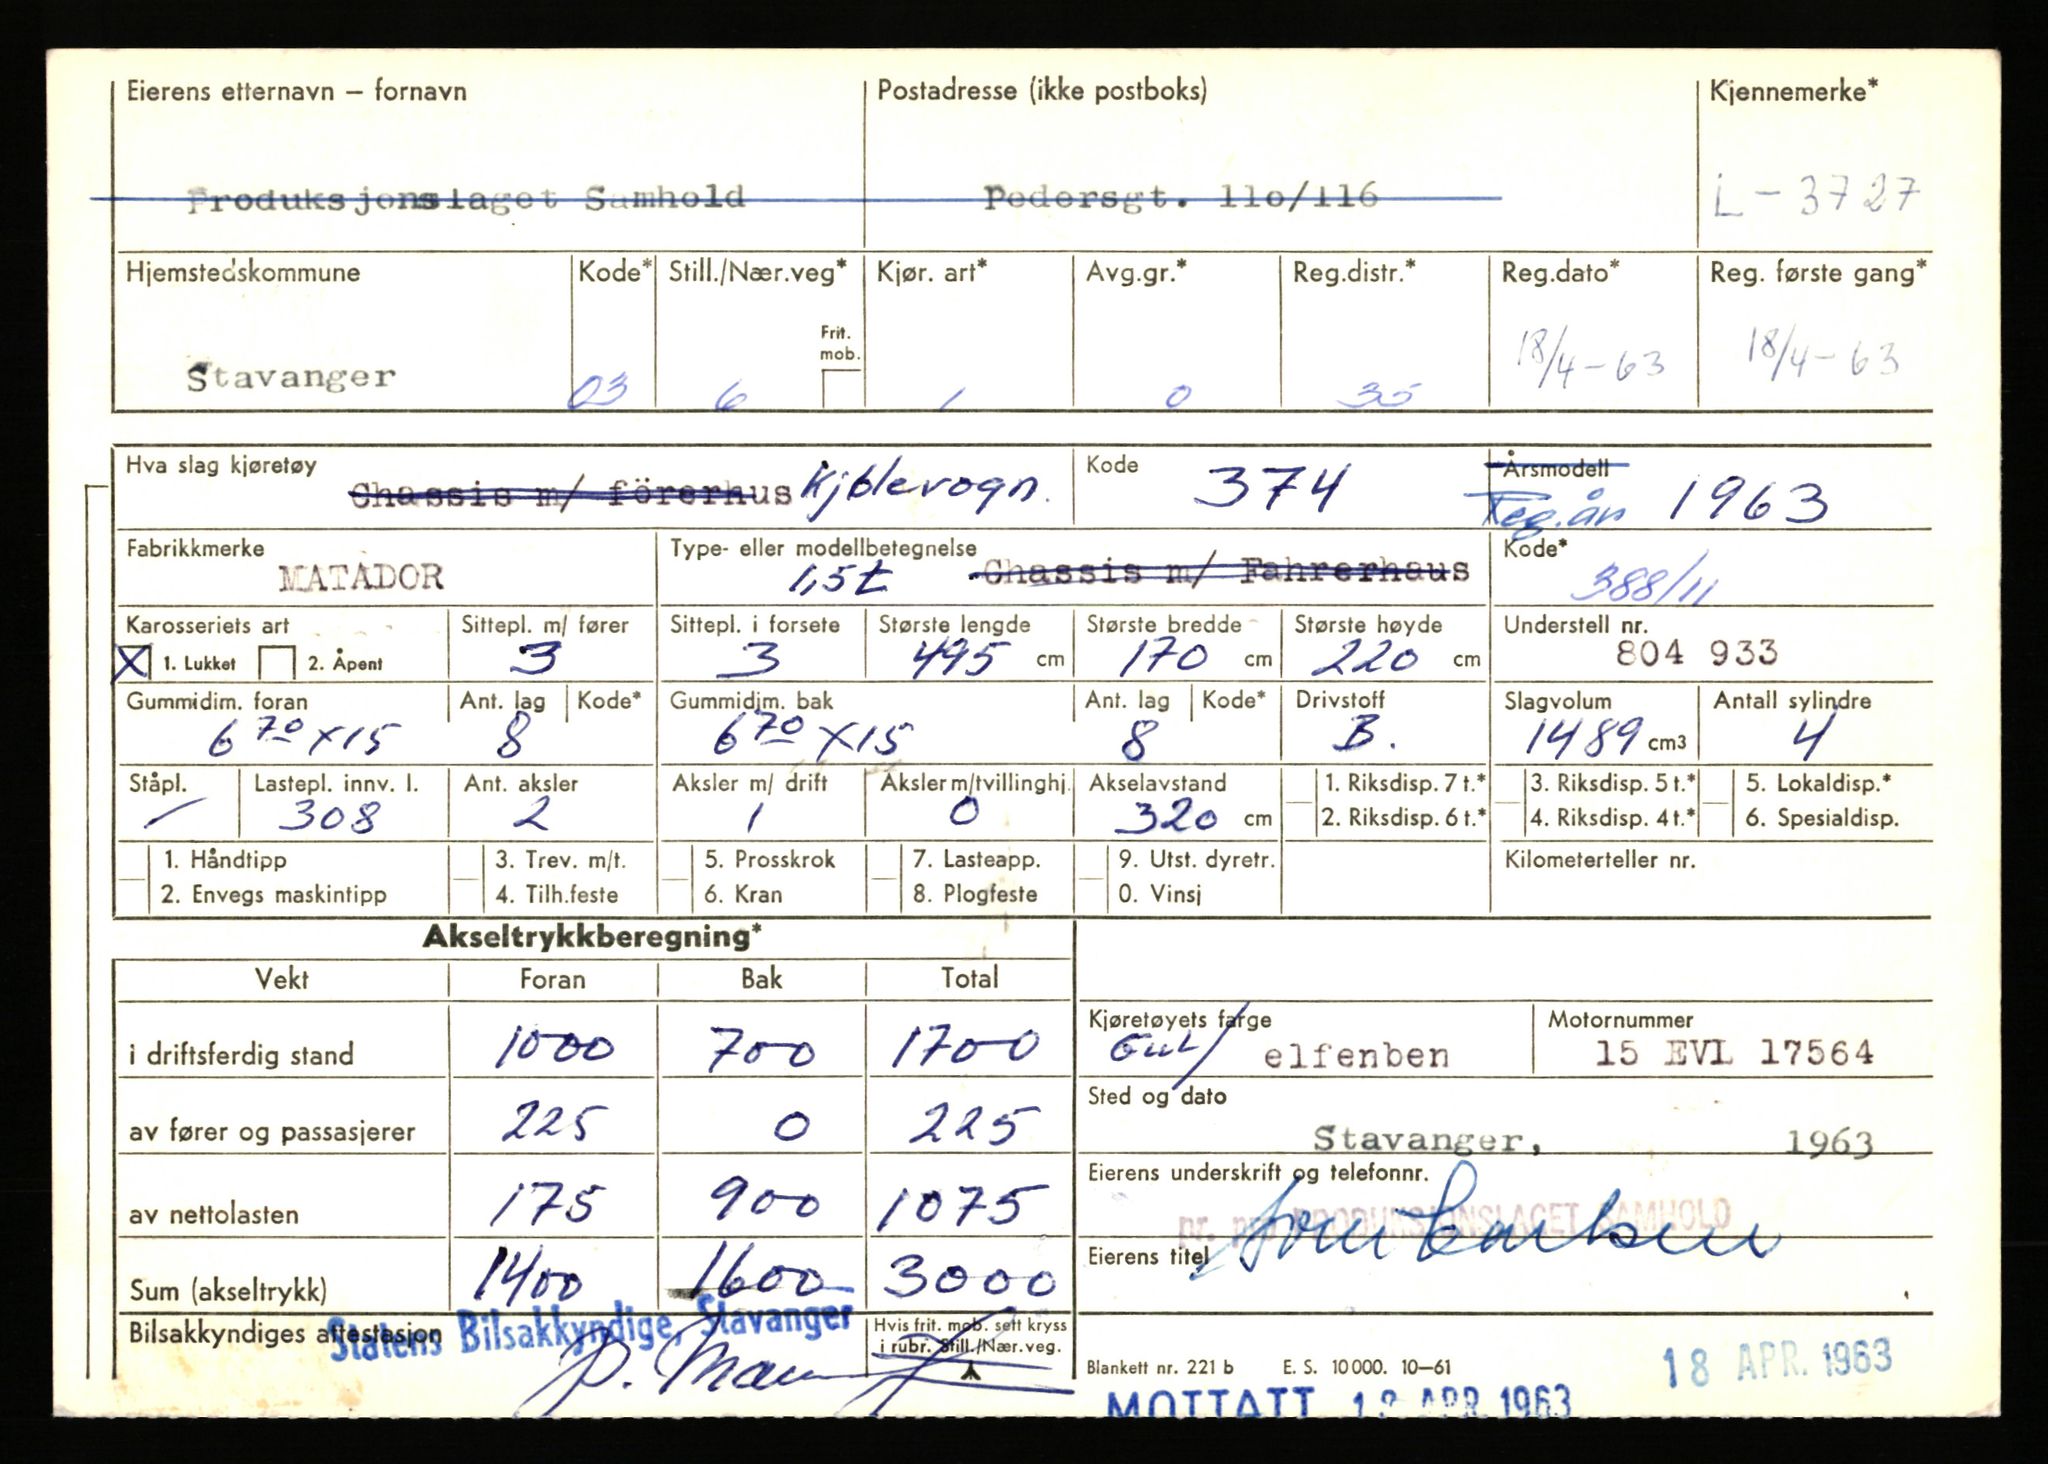 Eierens etternavn – fornavn Postadresse (ikke postboks) Kjennemerke*
Produksjonslaget Samhold Pedersgt. 11o/116 L-3727
Hjemstedskommune Kode* Still./Nær.veg* Kjør. art* Avg.gr.* Reg.distr.* Reg.dato* Reg. første gang*
Frit. mob.
Stavanger 03 6 1 0 35 18/4-63 18/4-63
Hva slag kjøretøy Kode Årsmodell
Chassis m/ förerhus Kjølevogn. 374 Reg.år 1963
Fabrikkmerke Type- eller modellbetegnelse Kode*
MATADOR 1,5t Chassis m/ Fahrerhaus 388/11
Karosseriets art Sittepl. m/ fører Sittepl. i forsete Største lengde Største bredde Største høyde Understell nr.
X 1. Lukket 2. Åpent 3 3 495 cm 170 cm 220 cm 804 933
Gummidim. foran Ant. lag Kode* Gummidim. bak Ant. lag Kode* Drivstoff Slagvolum Antall sylindre
6 70 x 15 8 6 70 x 15 8 B. 1489 cm3 4
Ståpl. Lastepl. innv. l. Ant. aksler Aksler m/ drift Aksler m/tvillinghj. Akselavstand 1. Riksdisp. 7 t.* 3. Riksdisp. 5 t.* 5. Lokaldisp.*
/ 308 2 1 0 320 cm 2. Riksdisp. 6 t.* 4. Riksdisp. 4 t.* 6. Spesialdisp.
1. Håndtipp 3. Trev. m/t. 5. Prosskrok 7. Lasteapp. 9. Utst. dyretr. Kilometerteller nr.
2. Envegs maskintipp 4. Tilh.feste 6. Kran 8. Plogfeste 0. Vinsj
Akseltrykkberegning*
Vekt Foran Bak Total
i driftsferdig stand 1000 700 1700
av fører og passasjerer 225 0 225
av nettolasten 175 900 1075
Sum (akseltrykk) 1400 1600 3000
Bilsakkyndiges attestasjon
Statens Bilsakkyndige, Stavanger
Hvis frit. mob. sett kryss
i rubr. Still./Nær.veg.
Kjøretøyets farge Motornummer
Gul/ elfenben 15 EVL 17564
Sted og dato
Stavanger, 1963
Eierens underskrift og telefonnr.
pr. pro PRODUKSJONSLAGET SAMHOLD
Eierens titel
Blankett nr. 221 b E. S. 10 000. 10–61
18 APR. 1963
MOTTATT 18 APR 1963